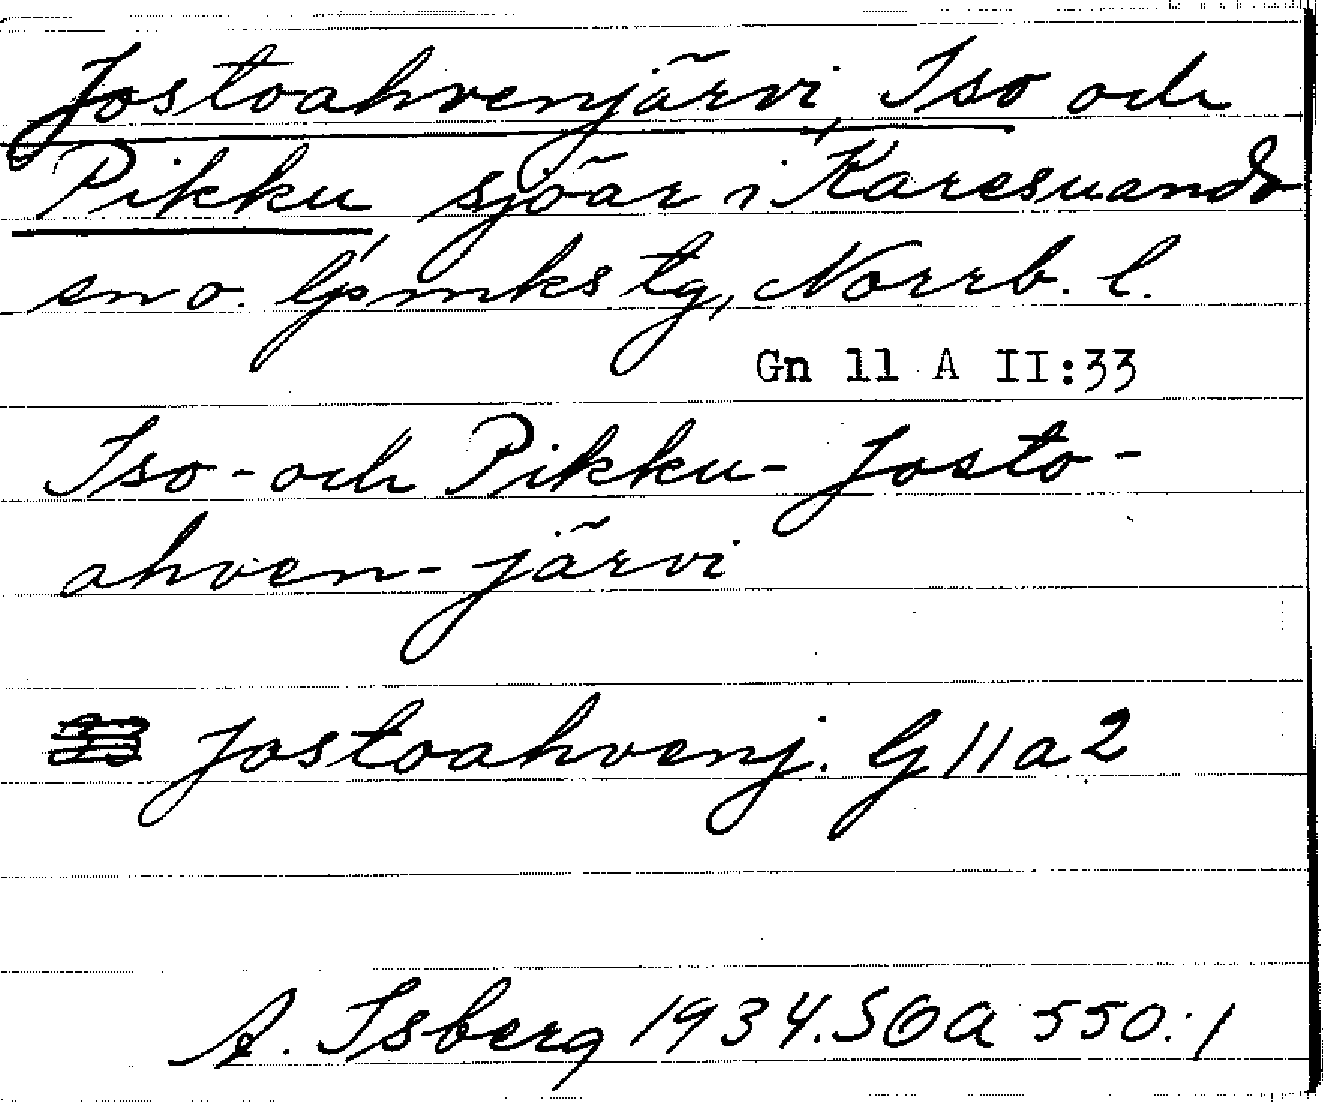 Jostoahvenjärvi, Iso och
Pikku sjöar i Karesuando
sn o. lpmks tg, Norrb. l.
Gn 11 A II:33
Iso- och Pikku- Josto-
ahven-järvi
Jostoahvenj. G 11 a 2
A. Isberg 1934. SOA 550:1